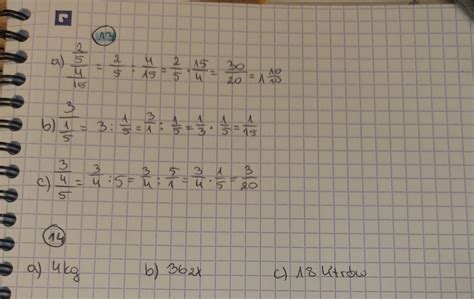 13
a) 2/5 / 4/15 = 2/5 : 4/15 = 2/5 · 15/4 = 30/20 = 1 10/10
b) 3 / 1/5 = 3 : 1/5 = 3/1 : 1/5 = 1/3 · 1/5 = 1/15
c) 3/4 / 5 = 3/4 : 5 = 3/4 : 5/1 = 3/4 · 1/5 = 3/20
14
a) 4kg
b) 36zł
c) 18 litrów